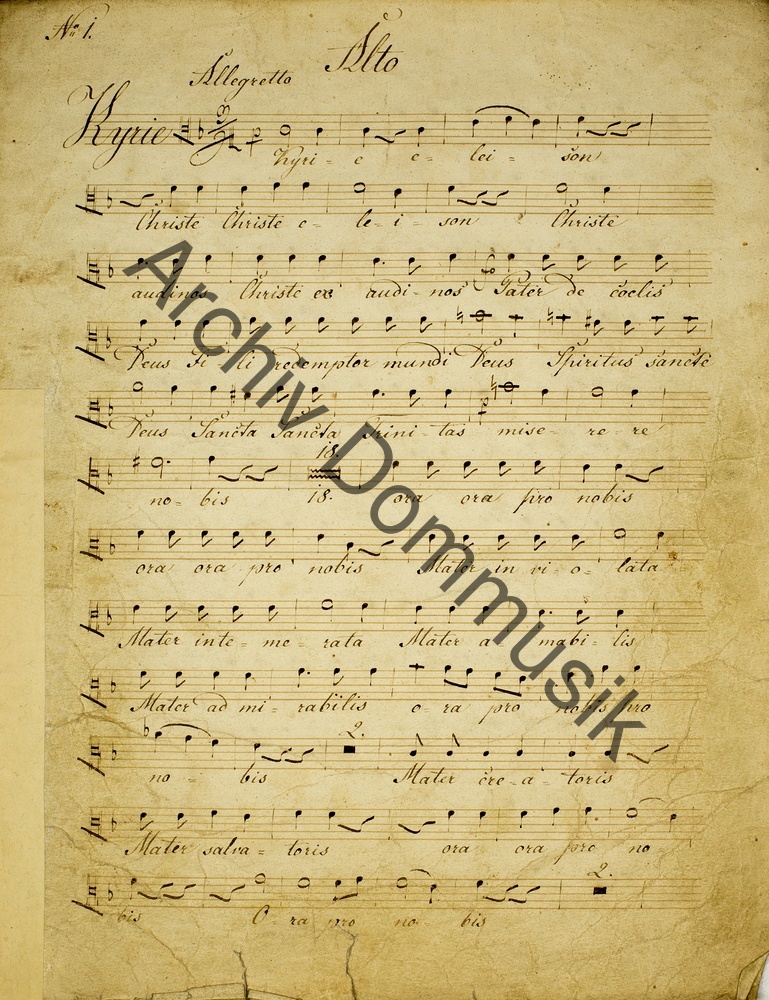 No. 1.
Alto
Allegretto
Kyrie
Kyri - e e - lei - son
Christe Christe e - le - i - son Christe
audinos Christe ex audi - nos Pater de coelis
Deus Fi li redemptor mundi Deus Spiritus sancte
Deus Sancta Sancta Trini - tas mise - re - re
18.
no - bis 18. ora ora pro nobis
ora ora pro nobis Mater in vi - o - lata
Mater inte - me - rata Mater a - mabi - lis
Mater ad mi - rabilis o - ra pro nobis pro
2.
no - bis Mater cre - a - toris
Mater salva - toris ora ora pro no
2.
bis O - ra pro no bis
Archiv Dommusik